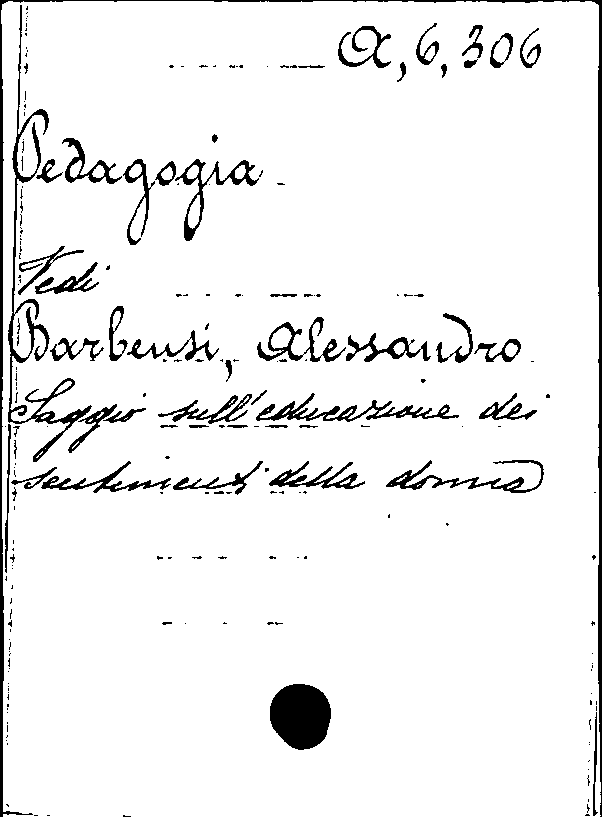 A, 6, 306
Pedagogia
Vedi
Barbensi, Alessandro
Saggio sull'educazione dei
sentimenti della donna